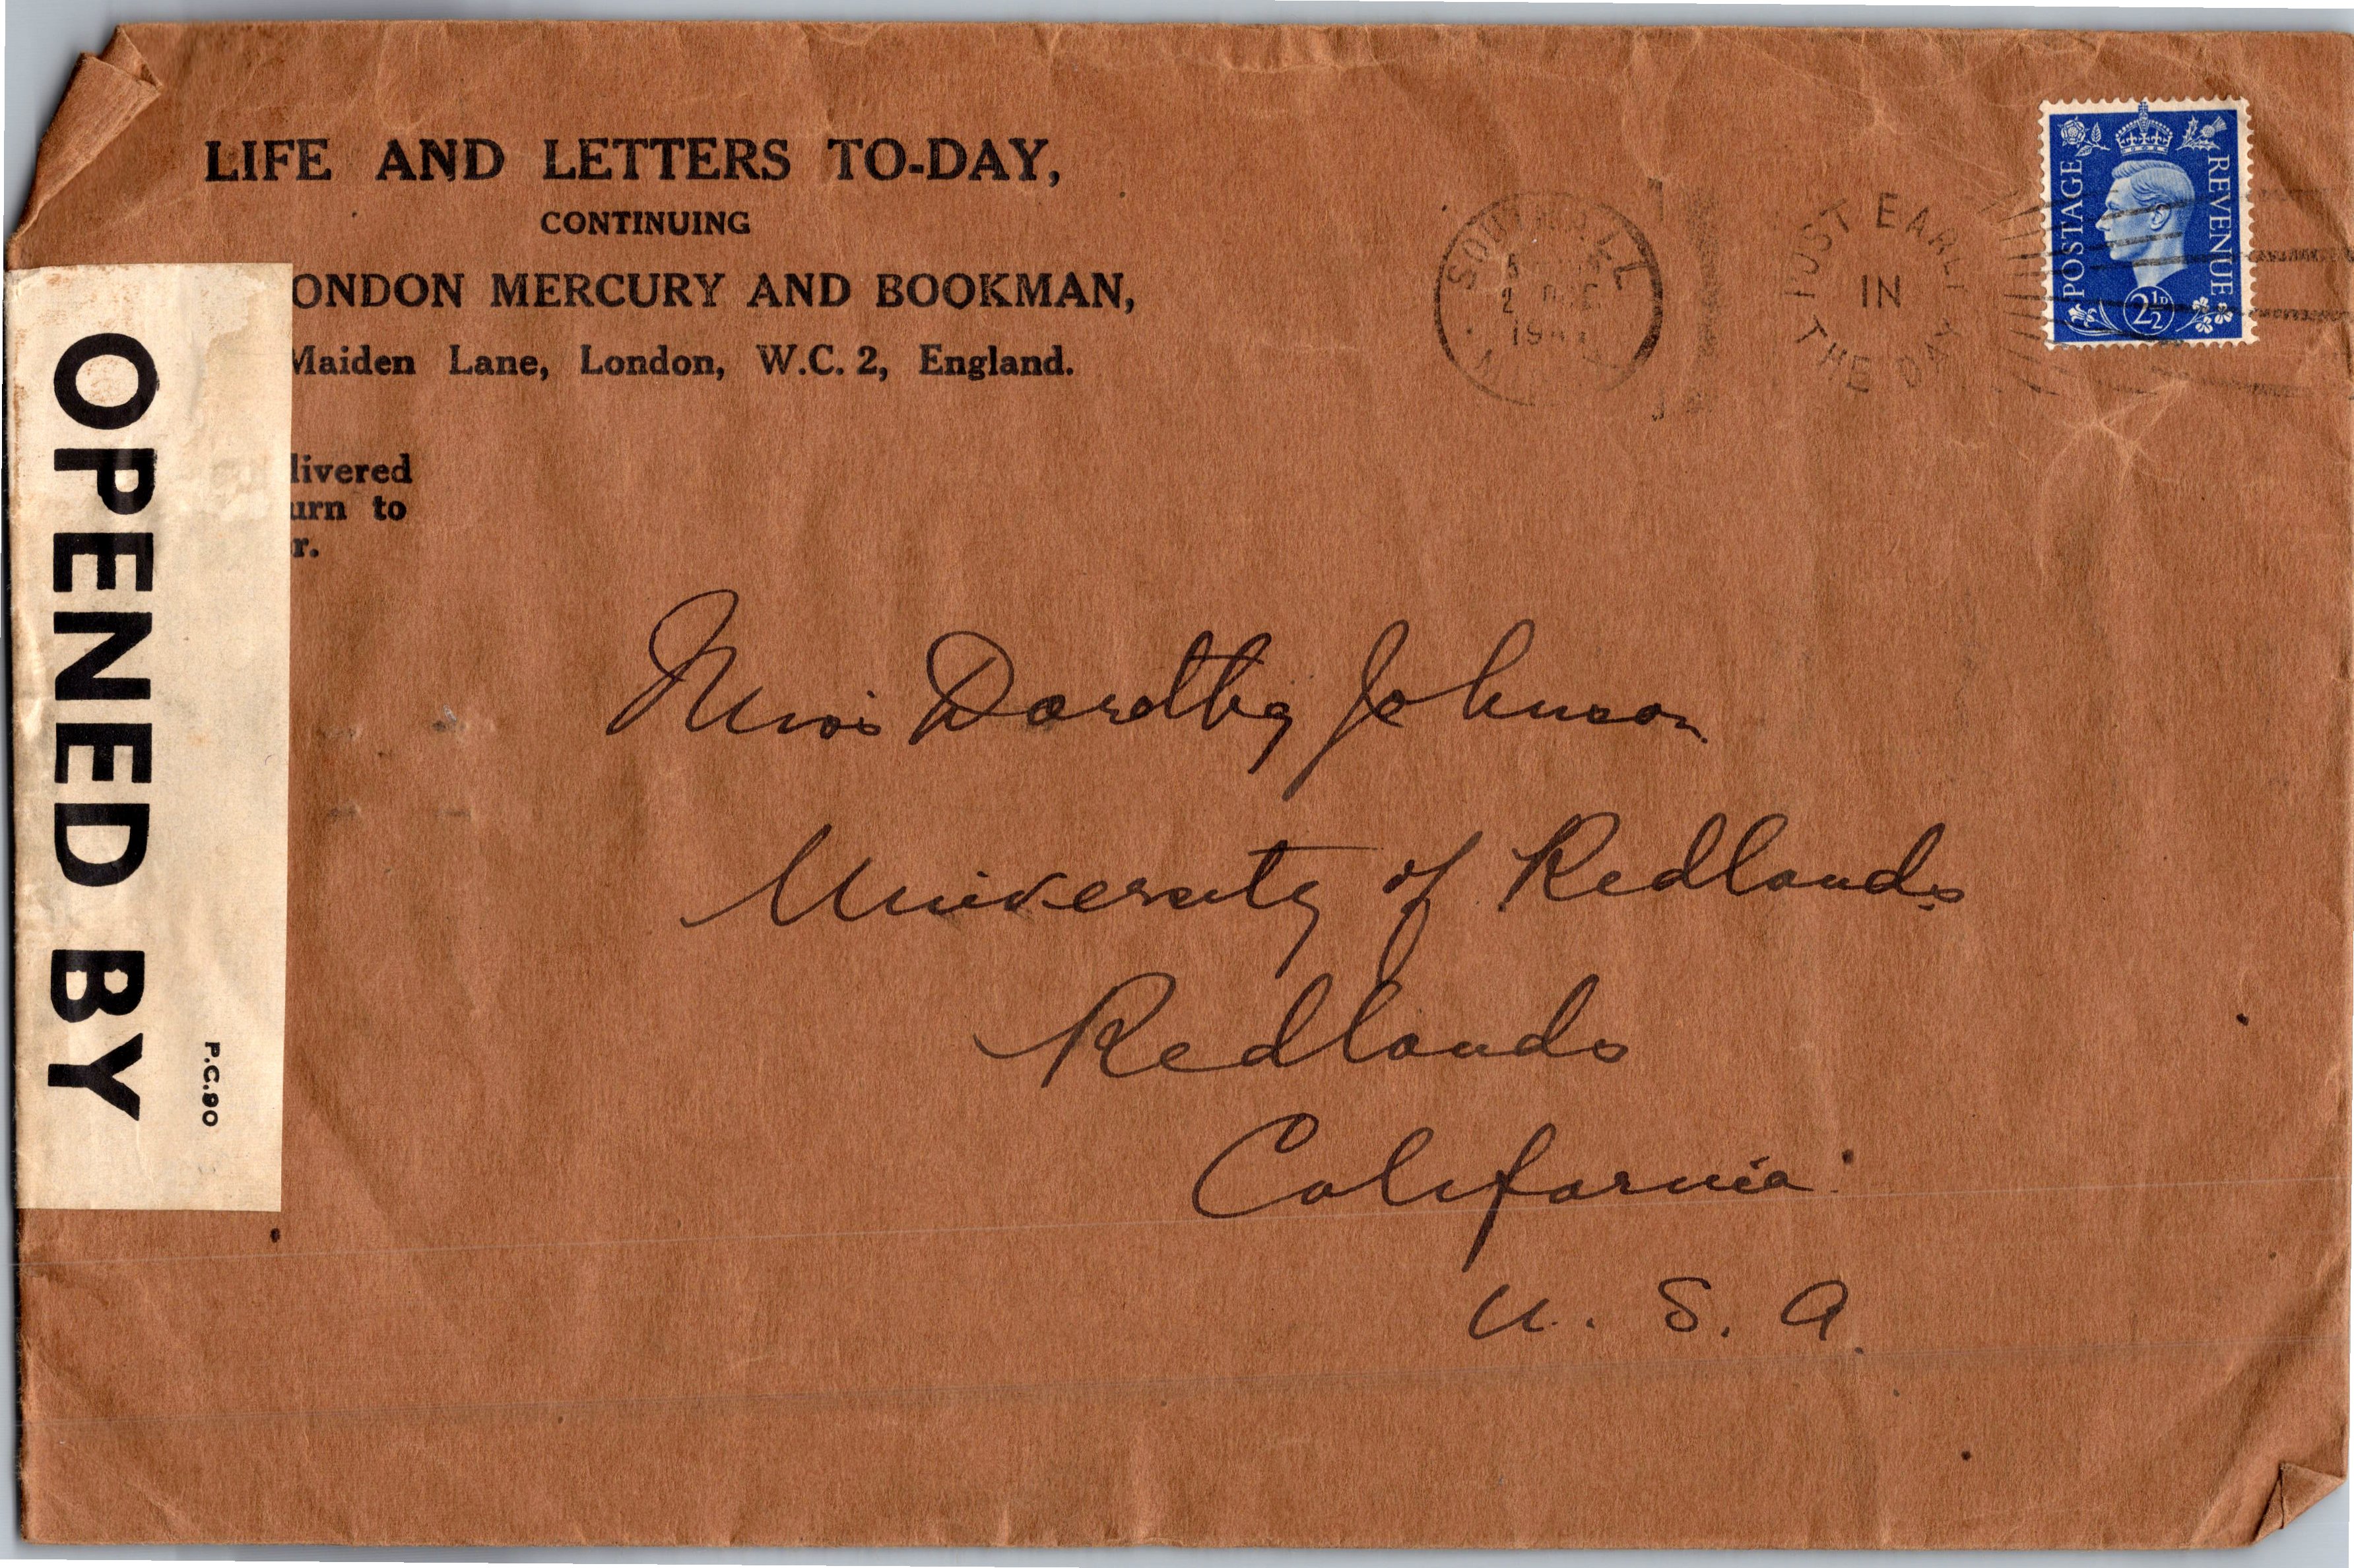 LIFE AND LETTERS TO-DAY,
CONTINUING
ONDON MERCURY AND BOOKMAN,
Maiden Lane, London, W.C. 2, England.
livered
urn to
r.
OPENED BY
P.C.90
SOUTHALL
1941
POST EARLY
IN
THE DAY
POSTAGE
REVENUE
2½D
Miss Dorothy Johnson
University of Redlands
Redlands
California
U. S. A